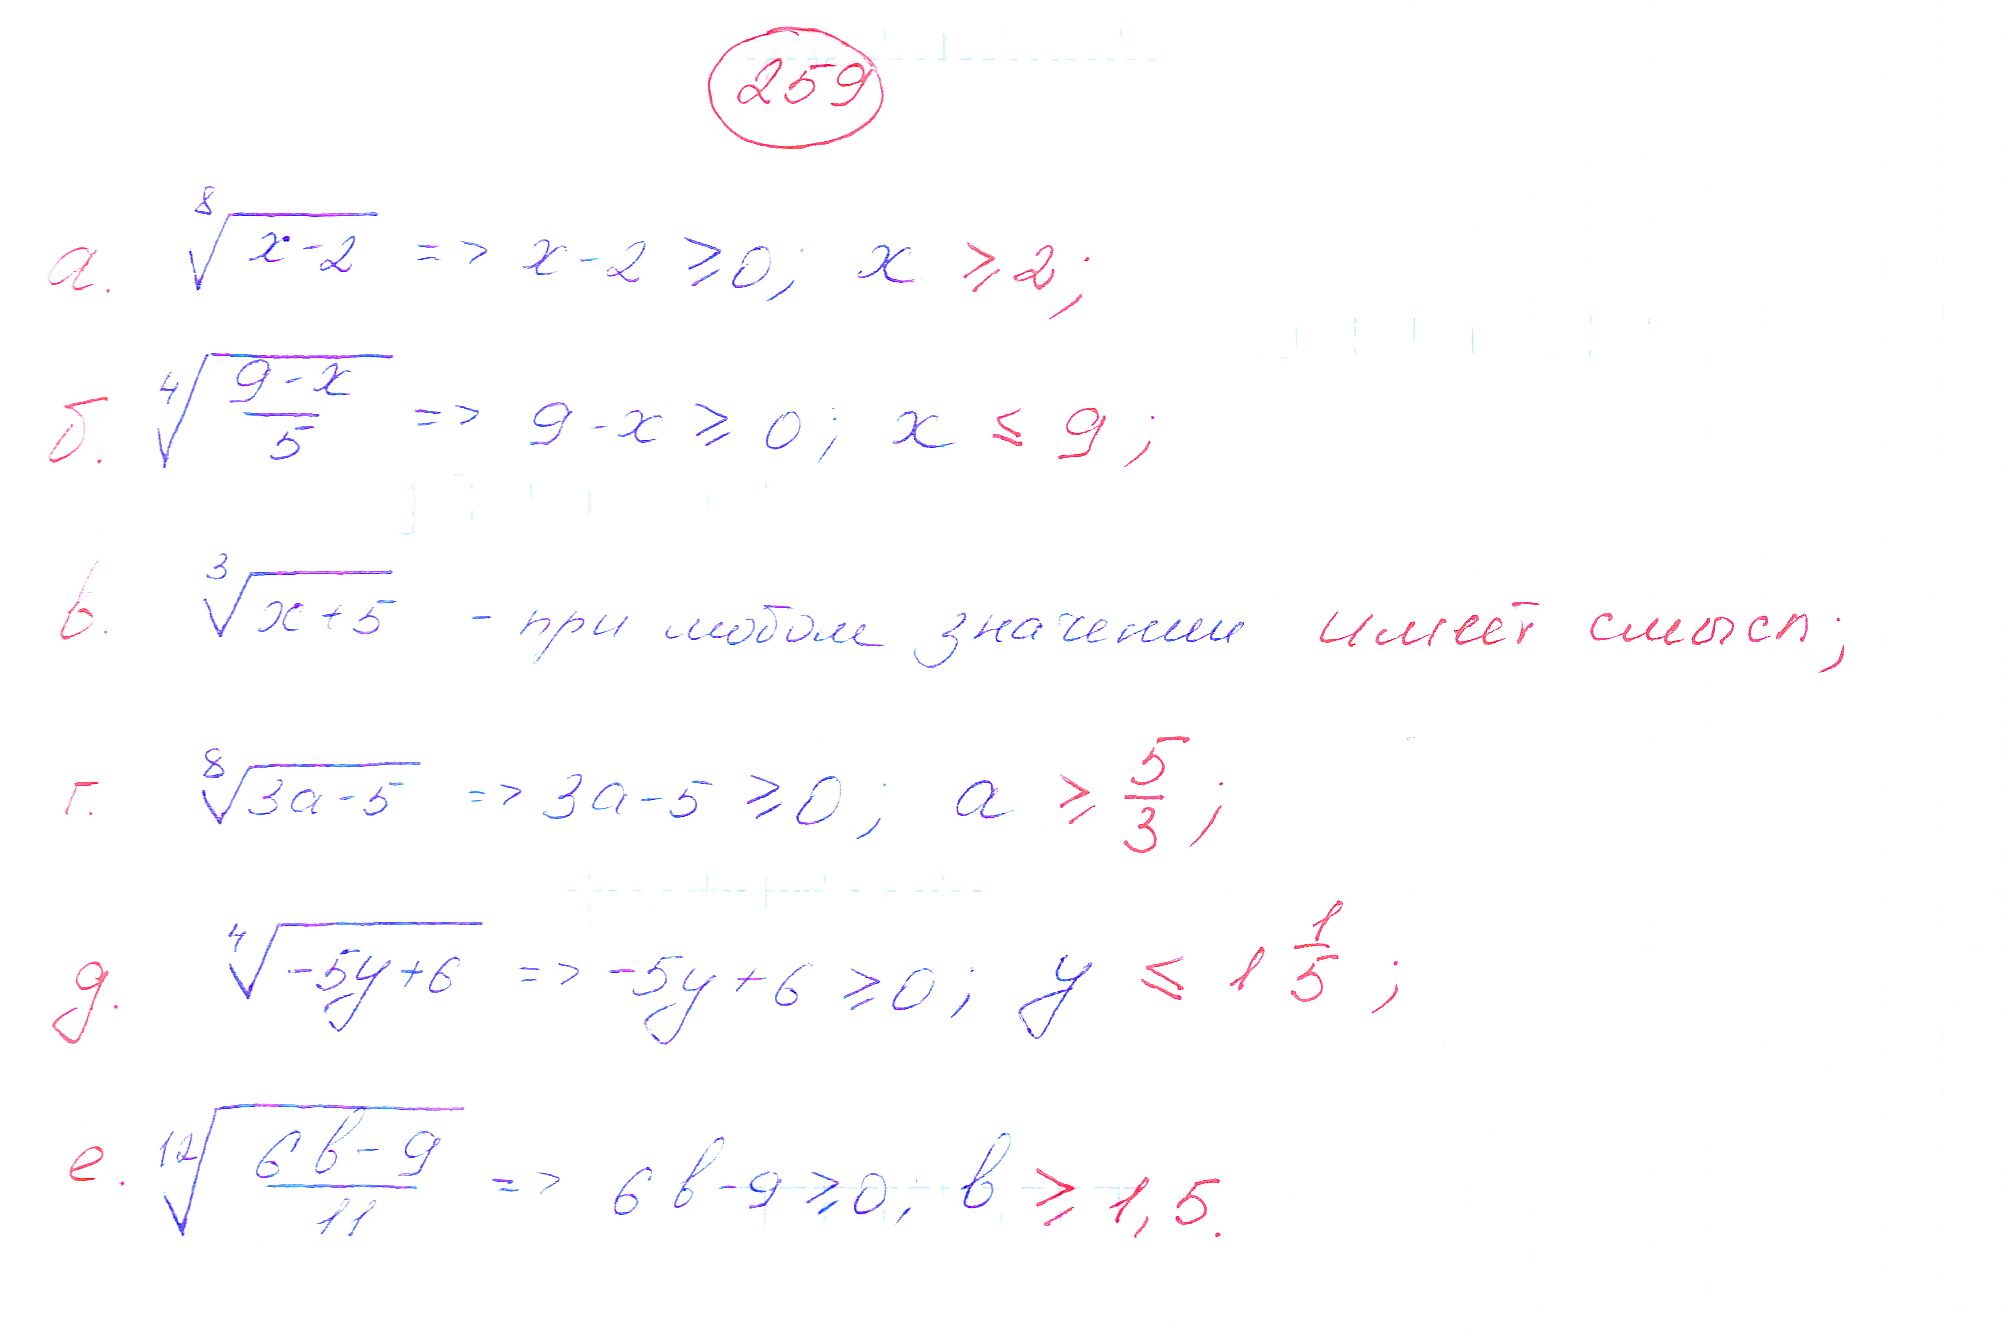 259
а. ⁸√(x-2) => x-2 ≥ 0; x ≥ 2;
б. ⁴√((9-x)/5) => 9-x ≥ 0; x ≤ 9;
в. ³√(x+5) - при любом значении имеет смысл;
г. ⁸√(3a-5) => 3a-5 ≥ 0; a ≥ 5/3;
д. ⁴√(-5y+6) => -5y+6 ≥ 0; y ≤ 1 1/5;
е. ¹²√((6b-9)/11) => 6b-9 ≥ 0; b ≥ 1,5.